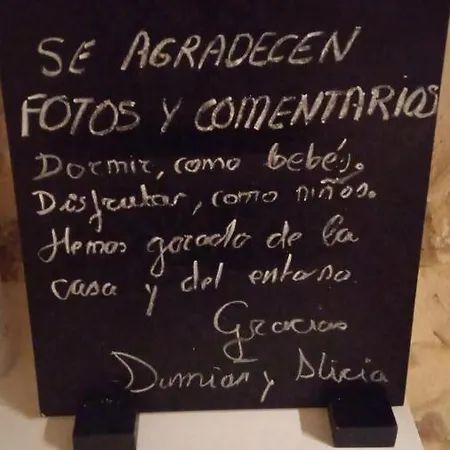 SE AGRADECEN
FOTOS Y COMENTARIOS
Dormir, como bebés.
Disfrutar, como niños.
Hemos gozado de la
casa y del entorno.
Gracias
Damian y Alicia